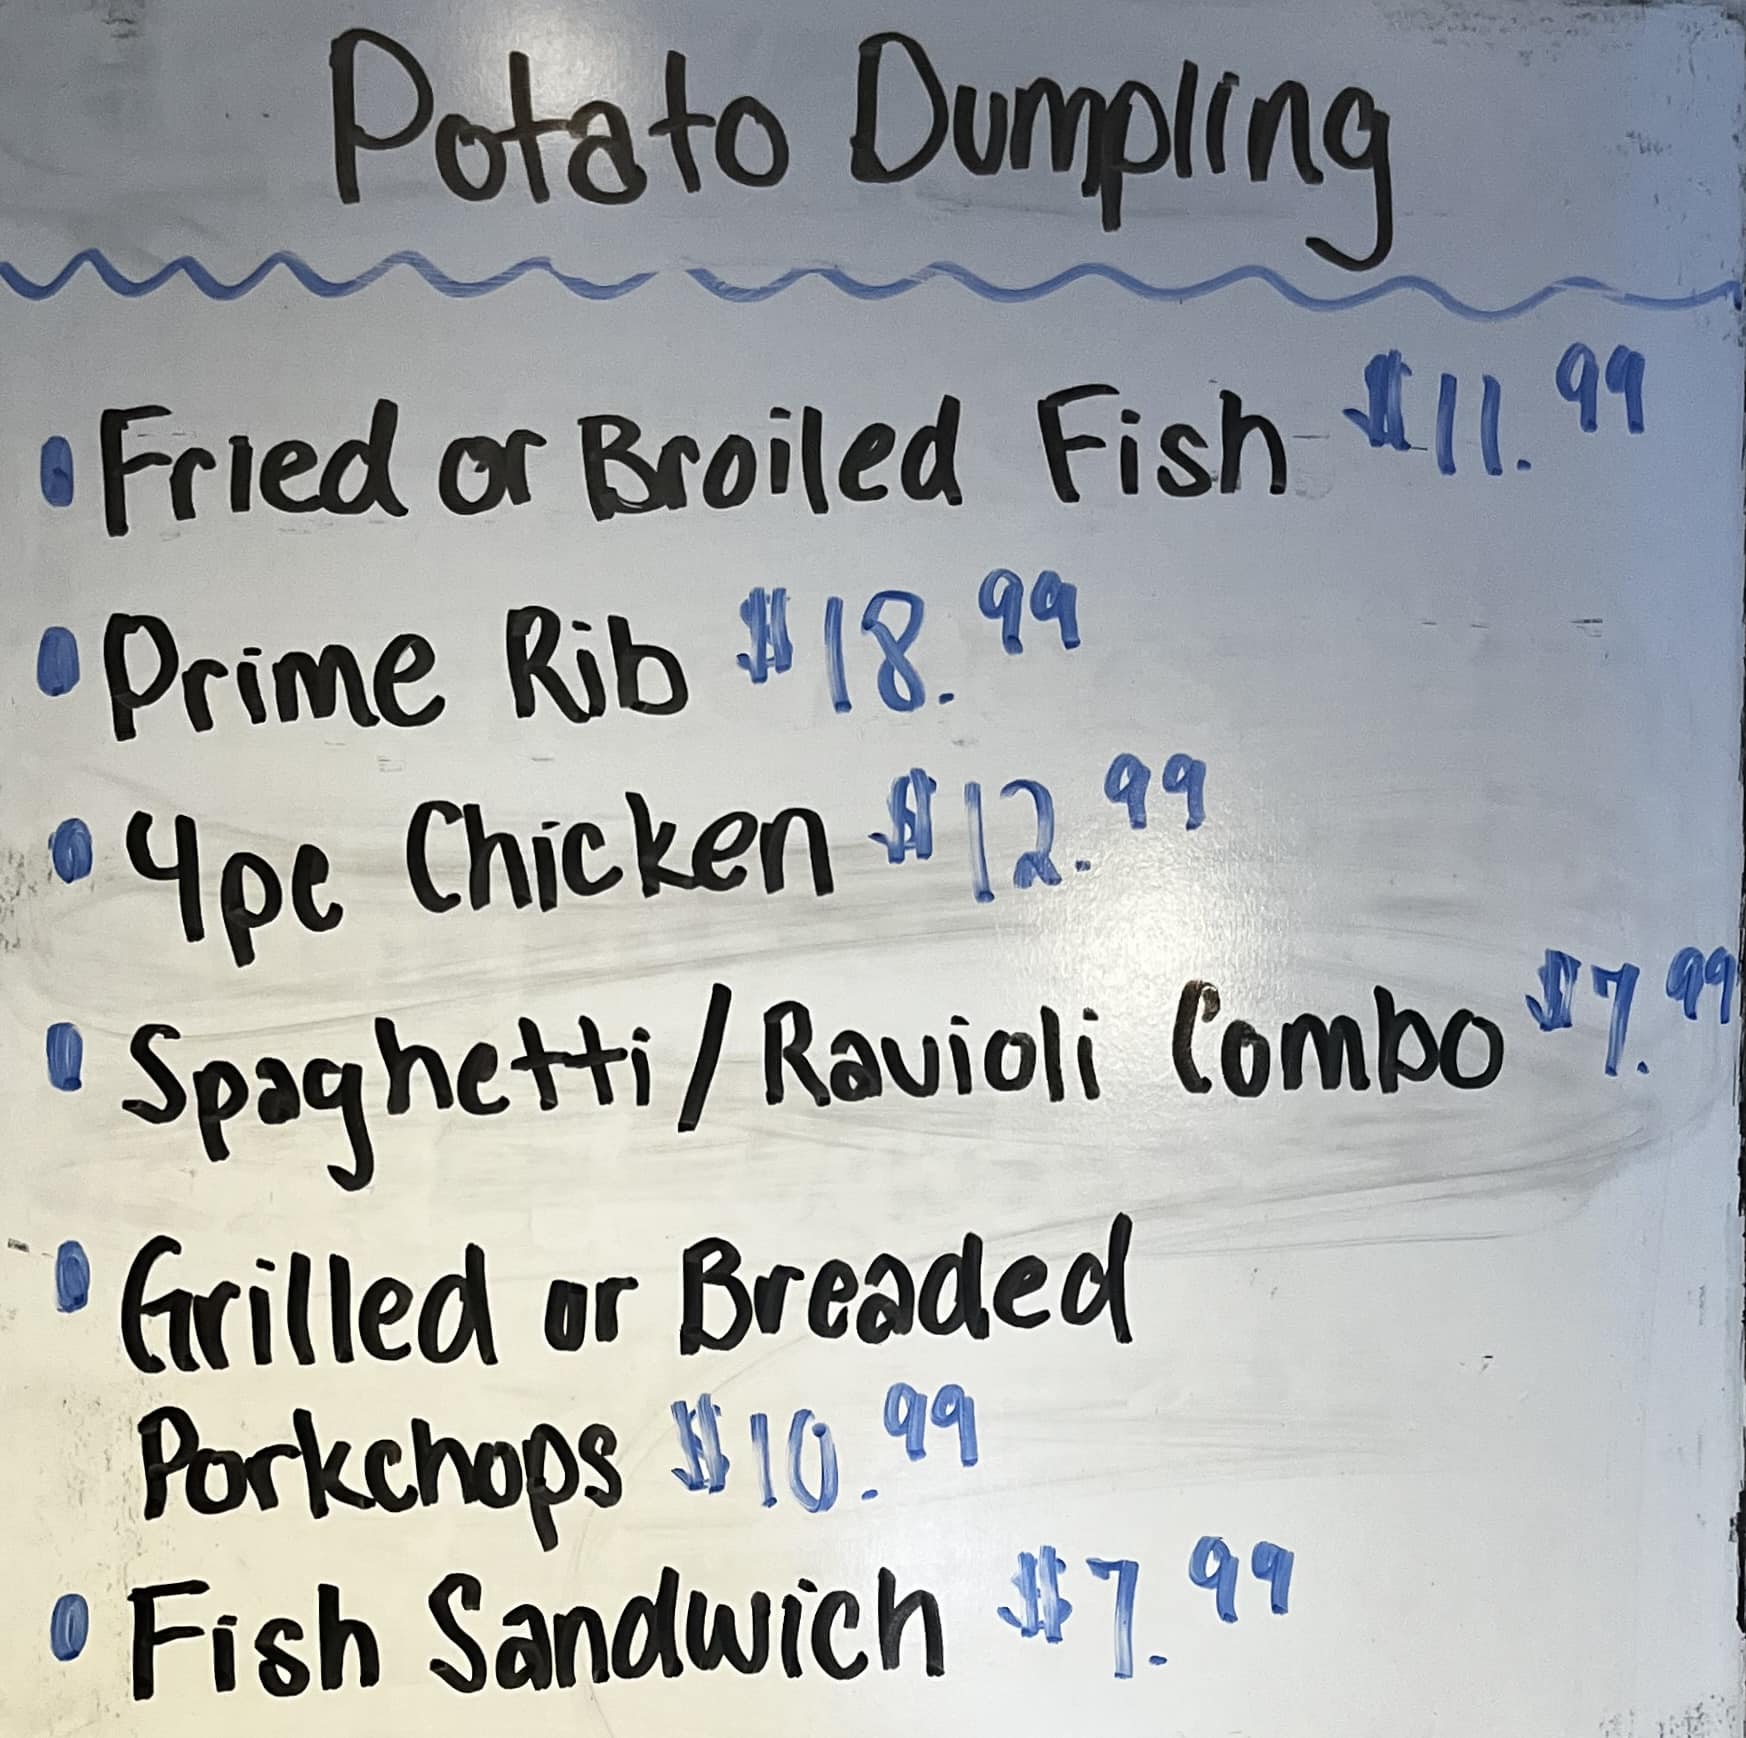 Potato Dumpling
• Fried or Broiled Fish $11.99
• Prime Rib $18.99
• 4pc Chicken $12.99
• Spaghetti/Ravioli Combo $7.99
• Grilled or Breaded
Porkchops $10.99
• Fish Sandwich $7.99